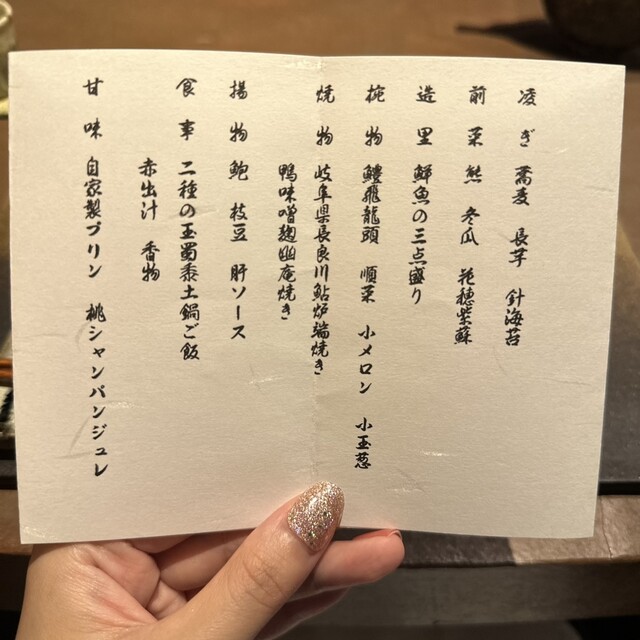 凌ぎ 蕎麦 長芋 針海苔
前菜 熊 冬瓜 花穂紫蘇
造里 鮮魚の三点盛り
椀物 鱧飛龍頭 順菜 小メロン 小玉葱
焼物 岐阜県長良川鮎炉端焼き
鴨味噌麹幽庵焼き
揚物 鮑 枝豆 肝ソース
食事 二種の玉蜀黍土鍋ご飯
赤出汁 香物
甘味 自家製プリン 桃シャンパンジュレ